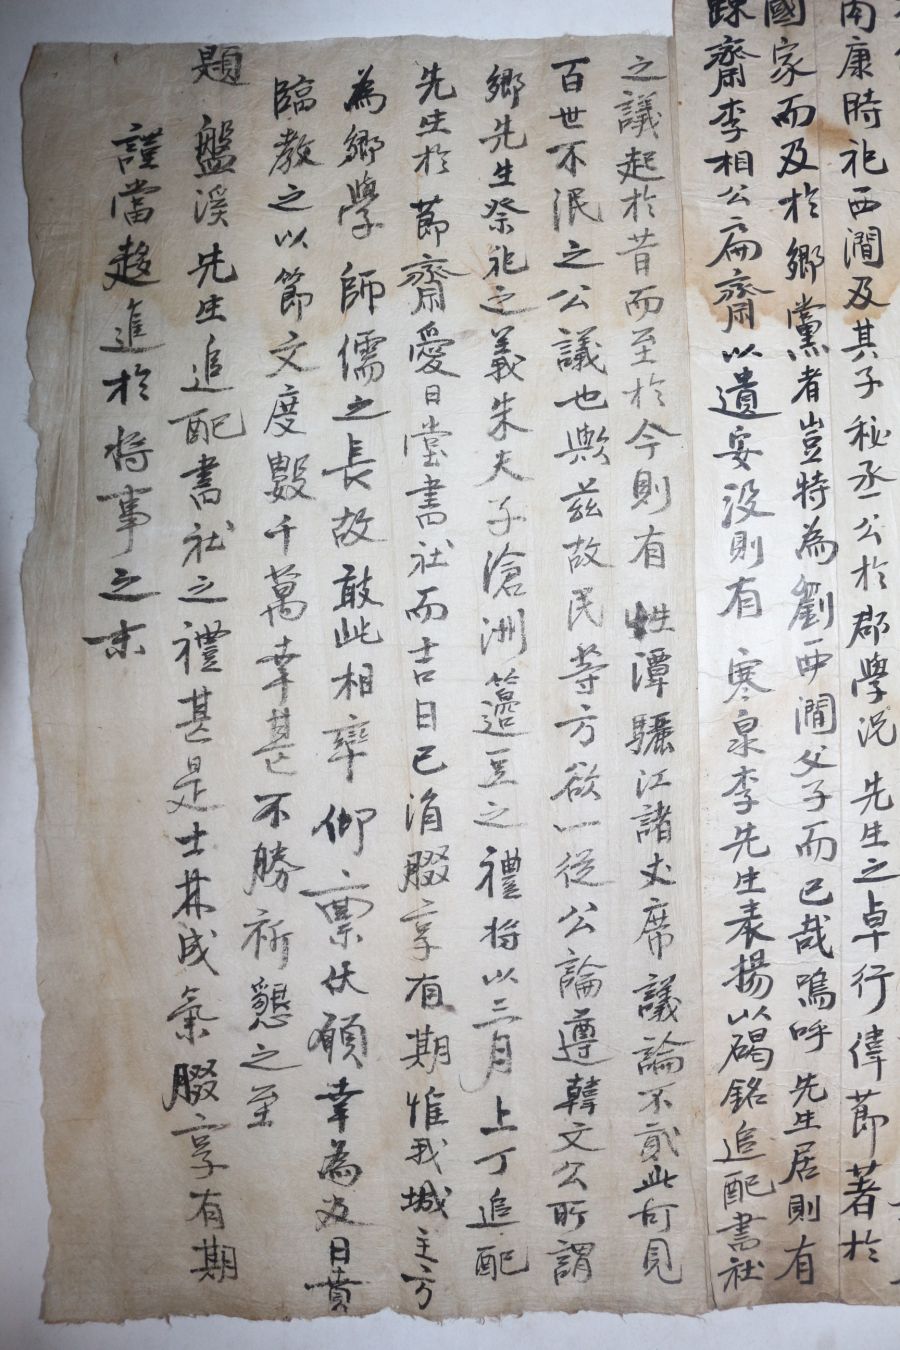 南康時祀西澗及其子秘丞公於郡學況 先生之卓行偉節著於
國家而及於鄉黨者豈特為劉西澗父子而已哉嗚呼 先生居則有
踈齋李相公扁齋以遺安沒則有 寒泉李先生表揚以碣銘追配書社
之議起於昔而至於今則有 性潭驪江諸丈席議論不貳此可見
百世不泯之公議也歟玆故民等方欲一從公論遵韓文公所謂
鄉先生祭祀之義朱夫子滄洲籩豆之禮將以三月上丁追配
先生於節齋愛日堂書社而吉日已涓腏享有期惟我城主方
為鄉學師儒之長故敢此相率仰稟伏願幸為及日賁
臨教之以節文度數千萬幸甚不勝祈懇之至
題 盤溪先生追配書社之禮甚是士林成氣腏享有期
謹當趍進於將事之末